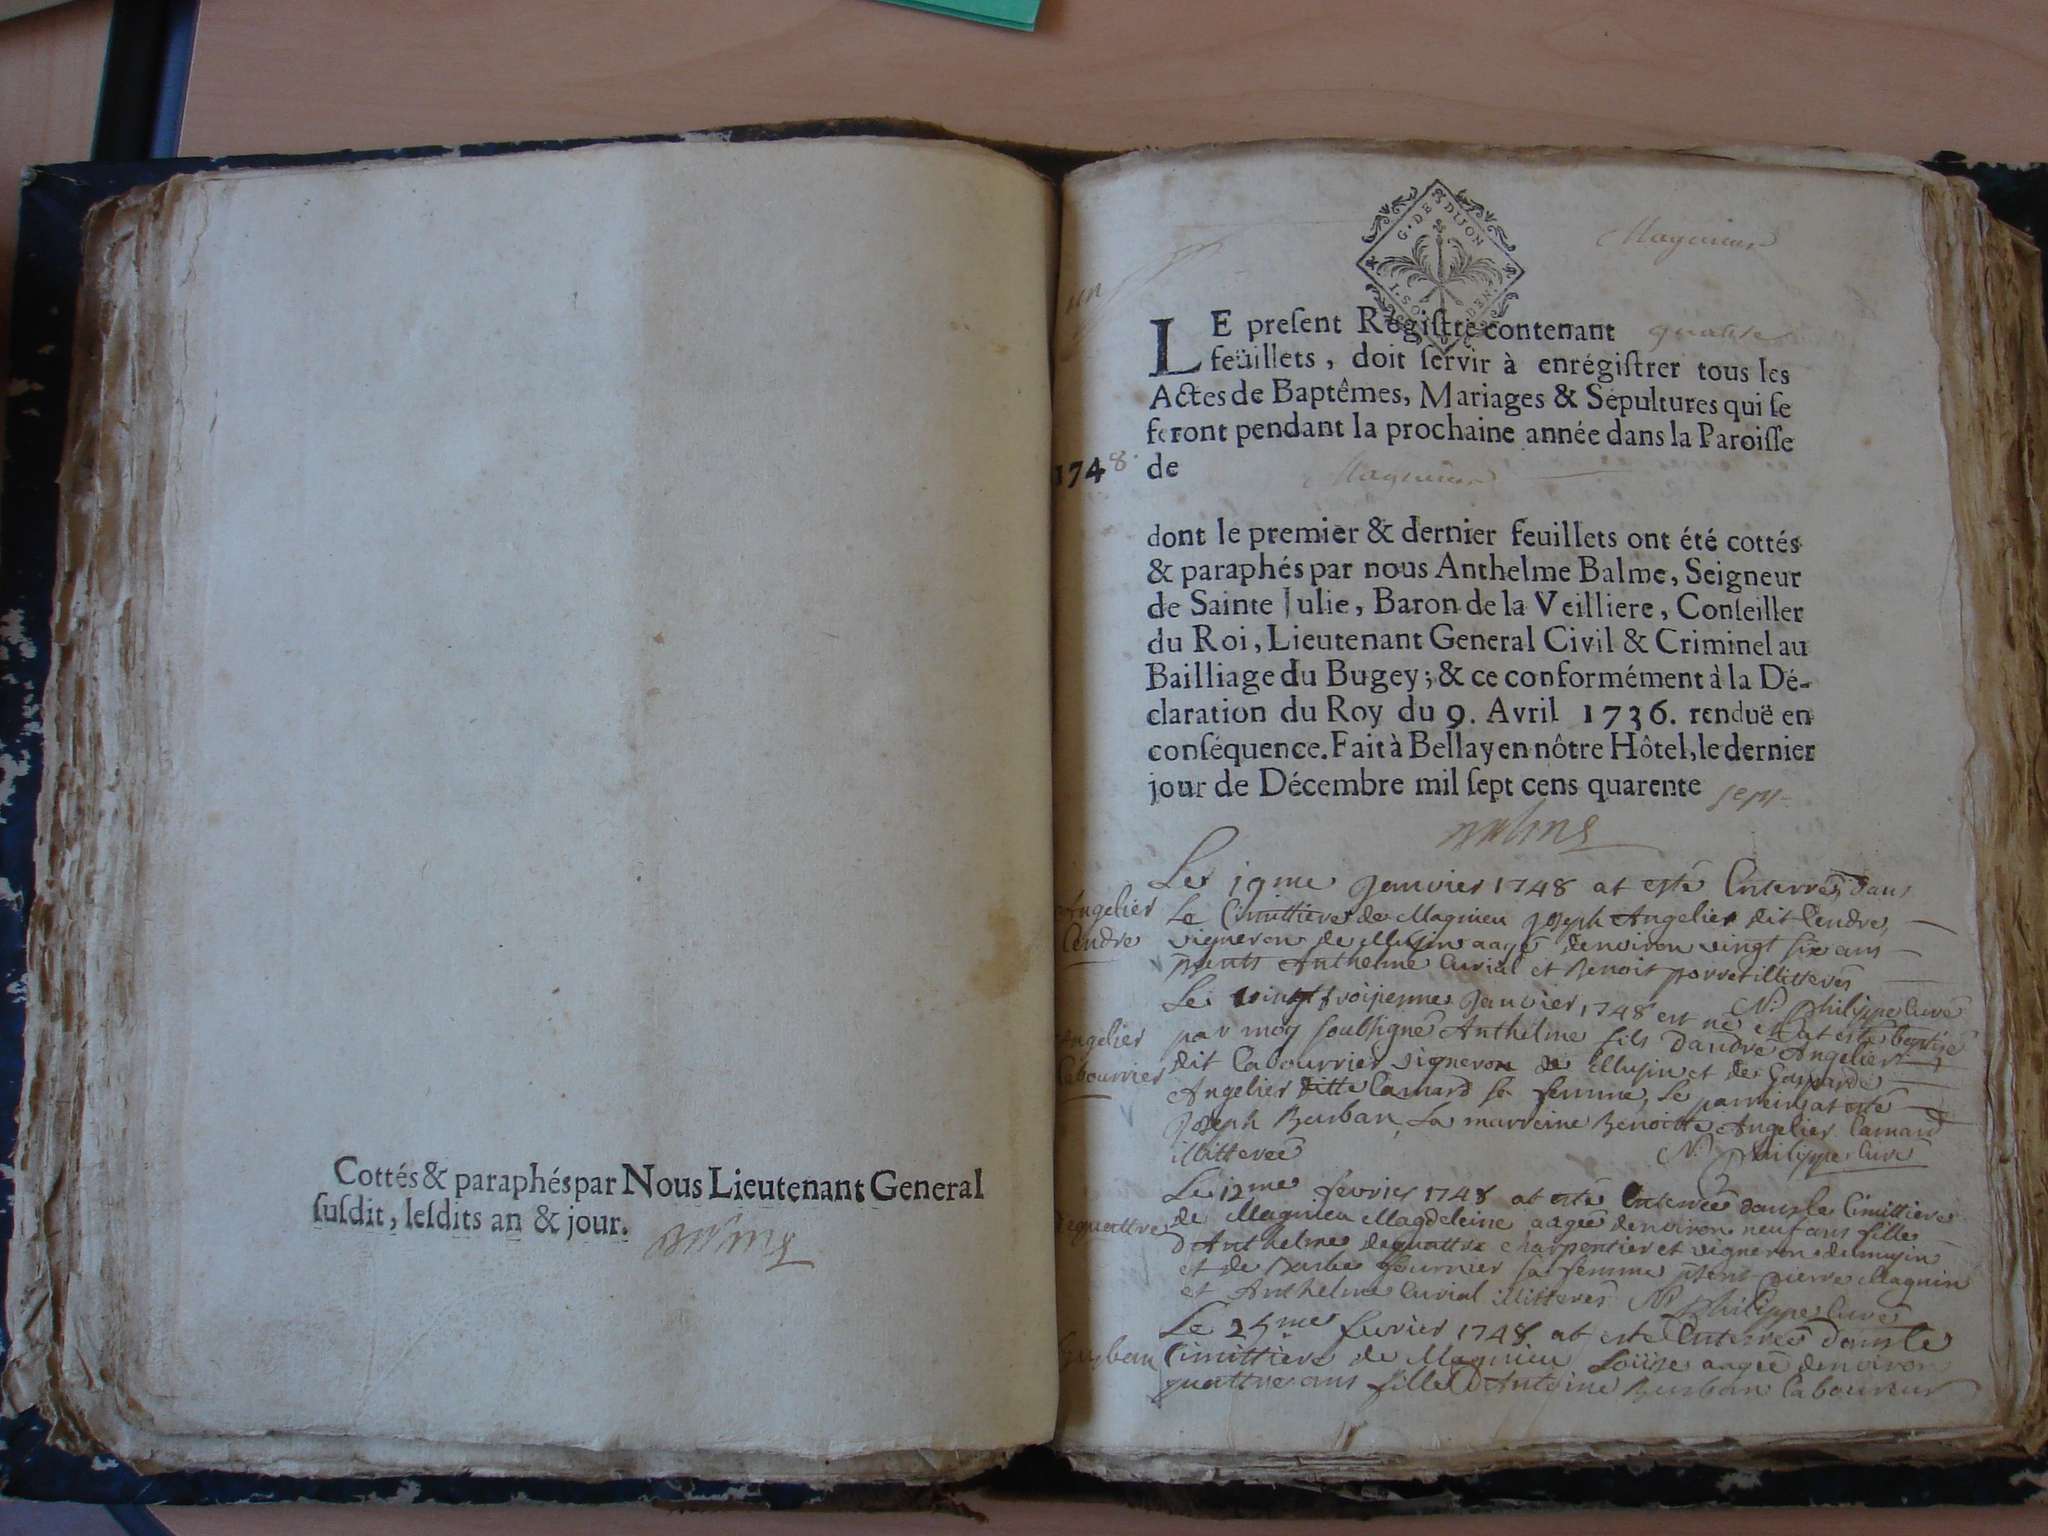 Cottés & paraphés par Nous Lieutenant General
susdit, lesdits an & jour.
G. DE DIJON
Magnieu
un
LE present Registre contenant quatre
feüillets, doit servir à enrégistrer tous les
Actes de Baptêmes, Mariages & Sépultures qui se
feront pendant la prochaine année dans la Paroisse
1748. de Magnieu
dont le premier & dernier feuillets ont été cottés
& paraphés par nous Anthelme Balme, Seigneur
de Sainte Julie, Baron de la Veilliere, Conseiller
du Roi, Lieutenant General Civil & Criminel au
Bailliage du Bugey; & ce conformément à la Dé-
claration du Roy du 9. Avril 1736. renduë en
conséquence. Fait à Bellay en nôtre Hôtel, le dernier
jour de Décembre mil sept cens quarente sept
Balme
Le 19me Janvier 1748 at esté Enterré dans
Angelier Le Cimittiere de Magnieu Joseph Angelier dit Cendre
Cendre vigneron de Musin aagé denviron vingt six ans
pnts Anthelme Curial et Benoit porret illitterés
N. Philippe Curé
Le vingt troisieme Janvier 1748 est né et at esté baptisé
Angelier par moy soubsigné Anthelme fils Dandré Angelier
Cabourrier dit Cabourrier vigneron de Musin et de
Angelier ditte Camard sa femme, Le parrein at esté
Joseph Burban, La marreine Benoitte Angelier Camard
illitterée N. Philippe Curé
Le 12me fevrier 1748 at esté Enterrée dans le Cimittiere
Dequattre de Magnieu Magdeleine aagée denviron neuf ans fille
d'Anthelme dequattre charpentier et vigneron de musin
et de Barbe fournier sa femme pnts pierre Magnin
et Anthelme Curial illitterés N. Philippe Curé
Le 25me fevrier 1748 at esté Enterrée dans le
Burban Cimittiere de Magnieu Loüise aagée denviron
quattre ans fille d'Antoine Burban laboureur